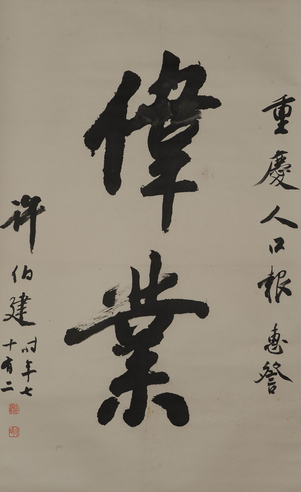 重慶人口報惠簽
偉業
許伯建時年七
十有二